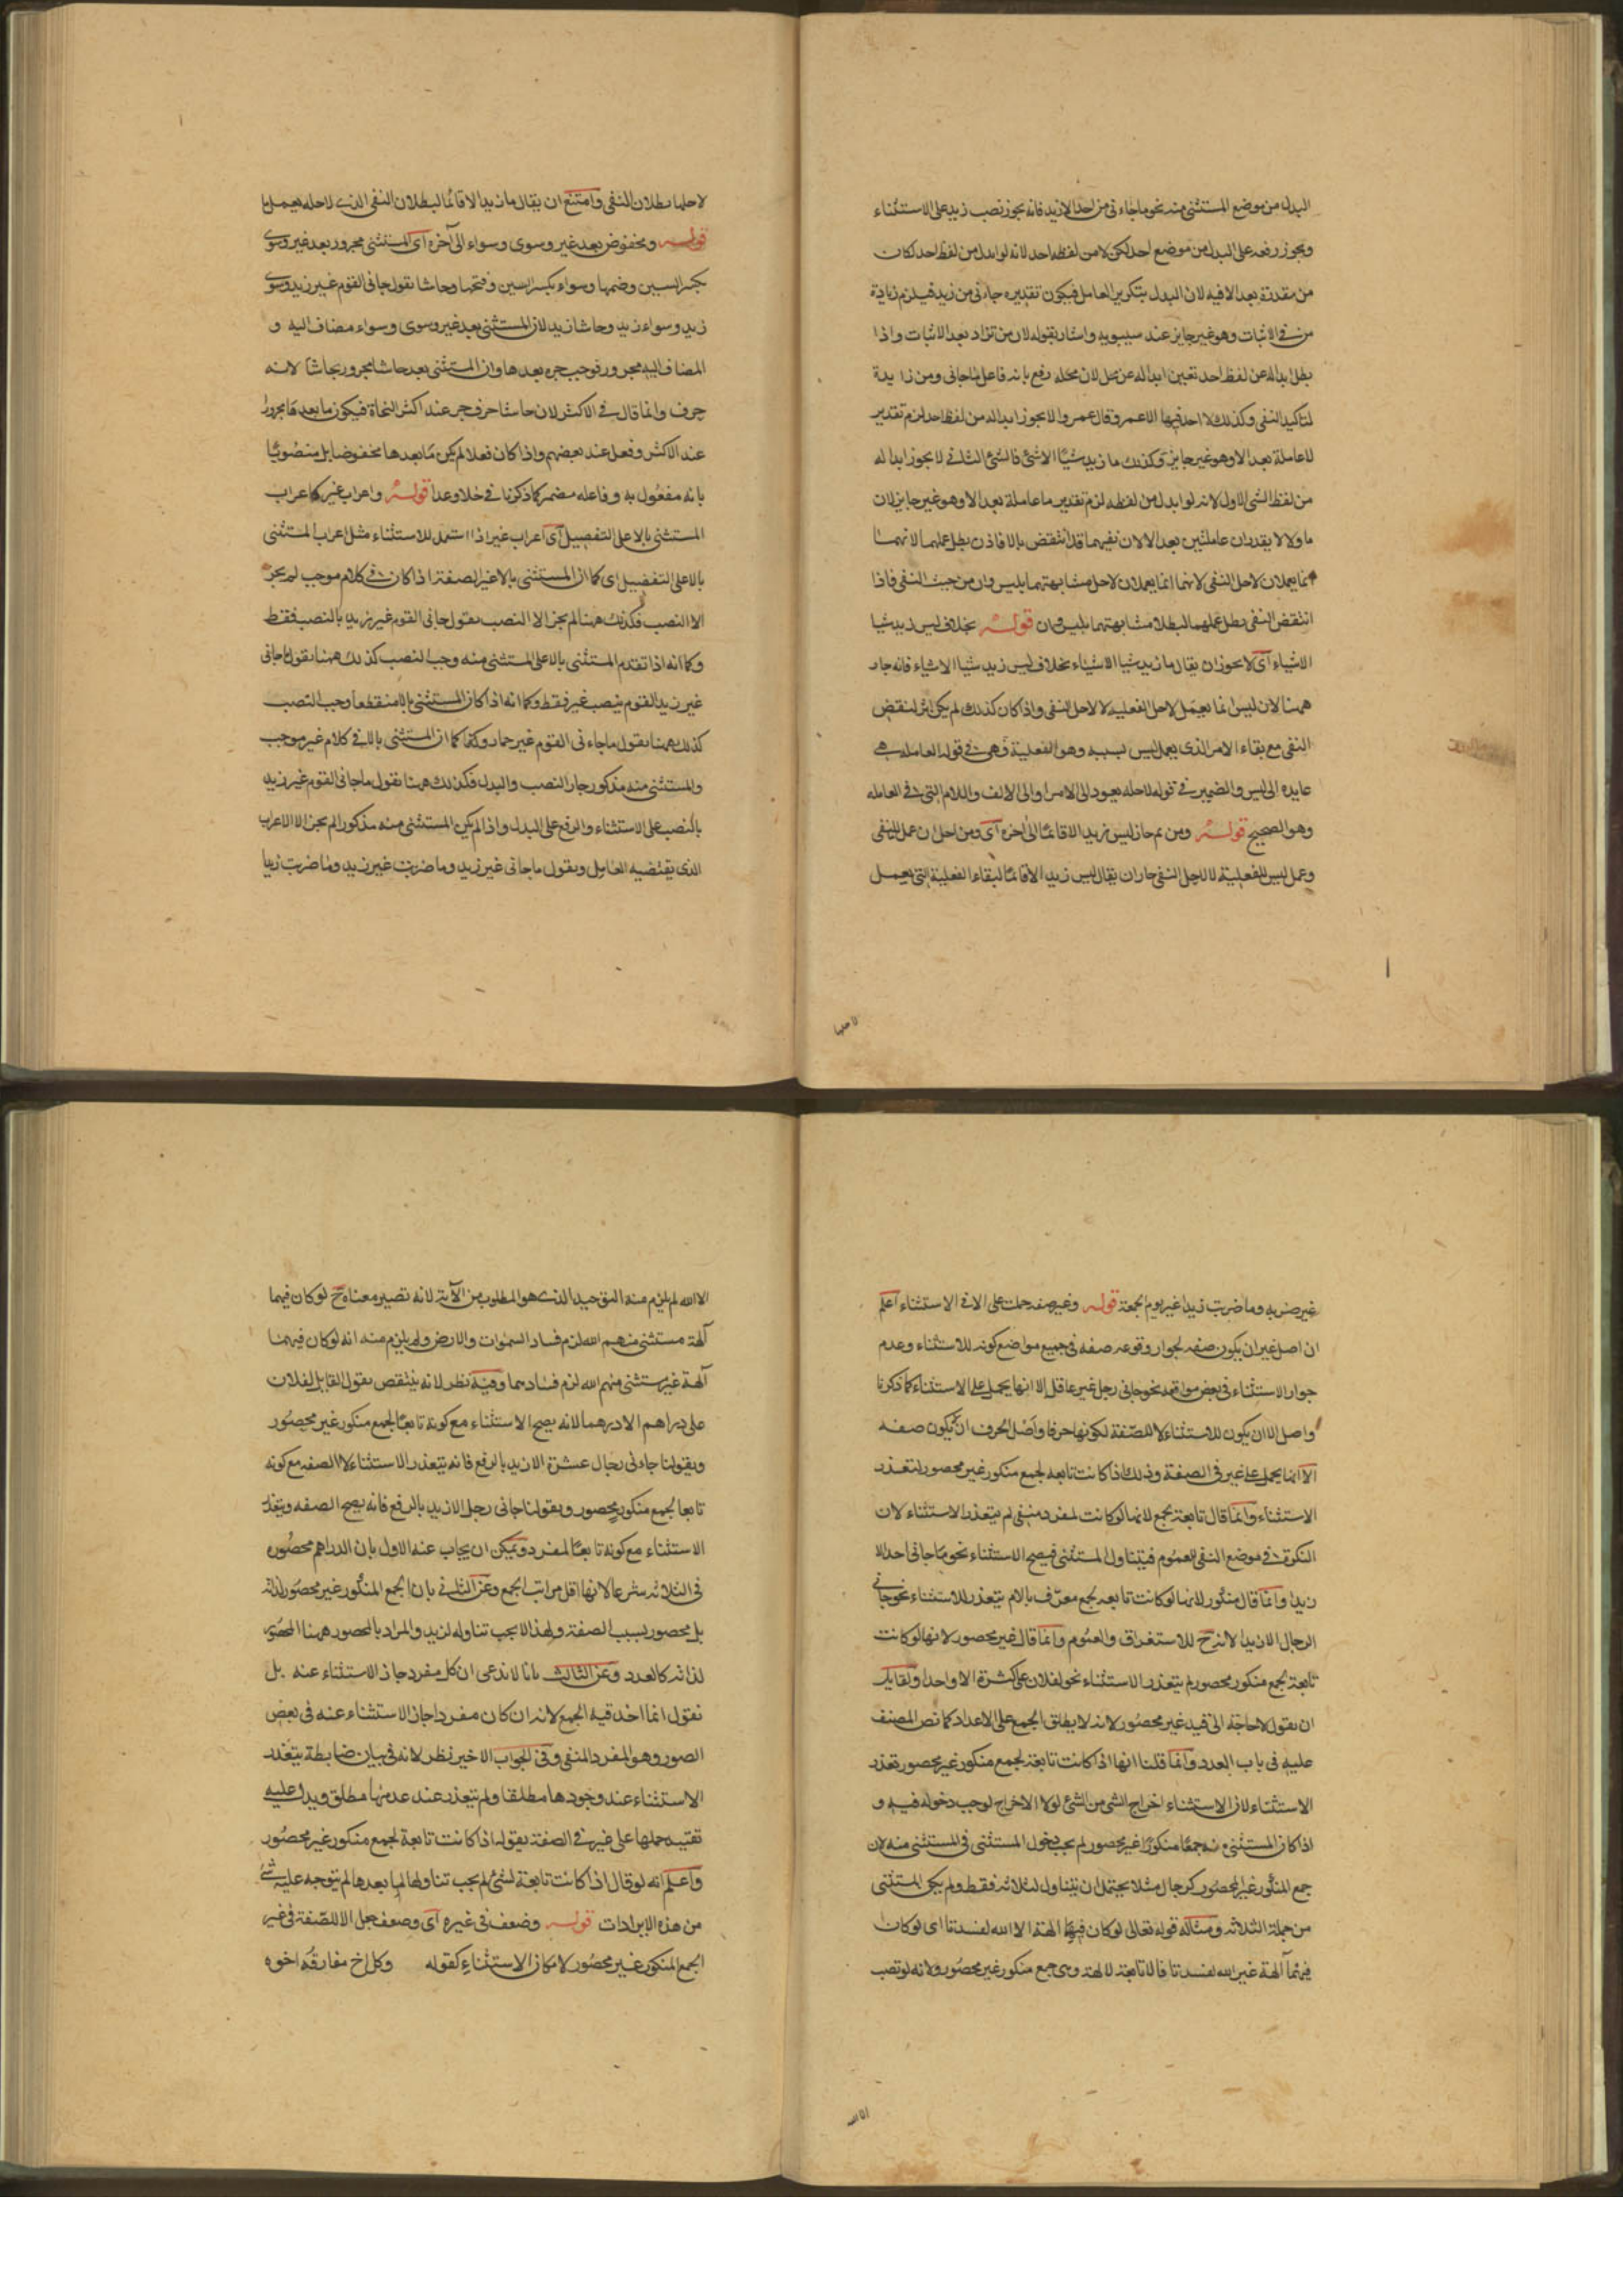 البدل من موضع المستثنى منه نحو ما جاءنى من احد الا زيد فانه يجوز نصب زيد على الاستثناء
ويجوز رفعه على البدل من موضع احد لكن لا من لفظ احد لانه لو ابدل من لفظ احد لكان
من مقدرة بعد الا فيه لان البدل بتكرير العامل فيكون تقديره جاءنى من زيد فيلزم زيادة
من فى الاثبات وهو غير جايز عند سيبويه واشار بقوله لان من تزاد بعد الاثبات واذا
بطل ابداله عن لفظ احد تعين ابداله عن محل لان محله رفع بانه فاعل ما جانى ومن زايدة
لتاكيد النفى وكذلك لا احد فيها الا عمرو قال عمرو لا يجوز ابداله من لفظ احد لزم تقدير
لا عاملة بعد الا وهو غير جايز وكذلك ما زيد شيئا الا شئ فالشئ الثانى لا يجوز ابداله
من لفظ الشئ الاول لانه لو ابدل من لفظه لزم تقدير ما عاملة بعد الا وهو غير جايز لان
ما ولا لا يقدران عاملتين بعد الا لان نفيهما قد انتقض بالا فاذن بطل عملهما لانهما
انما يعملان لاجل النفى لانهما انما يعملان لاجل مشابهتهما بليس وان من حيث النفى فاذا
انتقض النفى بطل عملهما لبطلان مشابهتهما بليس وان قوله بخلاف ليس زيد شيئا
الا شياء اى لا يجوز ان يقال ما زيد شيئا الا شياء بخلاف ليس زيد شيئا الا شياء فانه جاز
ههنا لان ليس انما يعمل لاجل الفعلية لا لاجل النفى واذا كان كذلك لم يكن اثر لنقض
النفى مع بقاء الامر الذى يعمل ليس بسببه وهو الفعلية فهى فى قوله العاملة هى
عايدة الى ليس والضمير فى قوله لاجله يعود الى الامر او الى الالف واللام التى فى العامله
وهو الصحيح قوله ومن ثم جاز ليس زيد الا قائما الى اخره اى ومن اجل ان عمل للنفى
وعمل ليس للفعلية لا لاجل النفى جاز ان يقال ليس زيد الا قائما لبقاء الفعلية التى يعمل
لاجلها
لاجلها بطلان النفى وامتنع ان يقال ما زيد الا قائما لبطلان النفى الذى لاجله يعمل ما
قوله ومخفوض بعد غير وسوى وسواء الى آخره اى المستثنى مجرور بعد غير وسوى
بكسر السين وضمها وسواء بكسر السين وفتحها وحاشا تقول جانى القوم غير زيد وسوى
زيد وسواء زيد وحاشا زيد لان المستثنى بعد غير وسوى وسواء مضاف اليه و
المضاف اليه مجرور فوجب جره بعدها وان المستثنى بعد حاشا مجرور بحاشا لانه
حرف وانما قال فى الاكثر لان حاشا حرف جر عند اكثر النحاة فيكون ما بعدها مجرورا
عند الاكثر وفعل عند بعضهم واذا كان فعلا لم يكن ما بعدها مخفوضا بل منصوبا
بانه مفعول به وفاعله مضمر كما ذكرنا فى خلا وعدا قوله واعراب غير كاعراب
المستثنى بالا على التفصيل اى اعراب غير اذا استعمل للاستثناء مثل اعراب المستثنى
بالا على التفصيل اى كما ان المستثنى بالا غير الصفة اذا كان فى كلام موجب لم يجز
الا النصب فكذلك ههنا لم يجز الا النصب تقول جانى القوم غير زيد بالنصب فقط
وكما انه اذا تقدم المستثنى بالا على المستثنى منه وجب النصب كذلك ههنا تقول ما جانى
غير زيد القوم بنصب غير فقط وكما انه اذا كان المستثنى بالا منقطعا وجب النصب
كذلك ههنا تقول ما جاءنى القوم غير حمار وكما ان المستثنى بالا فى كلام غير موجب
والمستثنى منه مذكور جاز النصب والبدل فكذلك ههنا تقول ما جانى القوم غير زيد
بالنصب على الاستثناء والرفع على البدل واذا لم يكن المستثنى منه مذكورا لم يجز الا الاعراب
الذى يقتضيه العامل وتقول ما جانى غير زيد وما ضربت غير زيد وما ضربت زيدا
غير ضربه وما ضربت زيدا غير يوم الجمعة قوله وغير صفة حملت على الا فى الاستثناء اعلم
ان اصل غير ان يكون صفه لجواز وقوعه صفه فى جميع مواضع كونه للاستثناء وعدم
جواز الاستثناء فى بعض مواقعه نحو جانى رجل غير عاقل الا انها يحمل على الا استثناء كما ذكرنا
واصل الا ان يكون للاستثناء لا للصفة لكونها حرفا واصل الحرف ان لا يكون صفه
الا انما يحمل على غير فى الصفة وذلك اذا كانت تابعه لجمع منكور غير محصور لتعذر
الاستثناء وانما قال تابعة لجمع لانها لو كانت لمفرد منفى لم يتعذر الاستثناء لان
النكرة فى موضع النفى للعموم فيتناول المستثنى فيصح الاستثناء نحو ما جانى احد الا
زيدا وانما قال منكور لانها لو كانت تابعه لجمع معرف باللام يتعذر للاستثناء نحو جانى
الرجال الا زيدا لانه ح للاستغراق والعموم وانما قال غير محصور لانها لو كانت
تابعة لجمع منكور محصور لم يتعذر الاستثناء نحو لفلان على عشرة الا واحدا ولقايل
ان يقول لا حاجة الى قيد غير محصور لانه لا يطلق الجمع على الاعداد كما نص المصنف
عليه فى باب العدد وانما قلنا انها اذا كانت تابعة لجمع منكور غير محصور تعذر
الاستثناء لان الاستثناء اخراج الشئ من الشئ لولا الاخراج لوجب دخوله فيه و
اذا كان المستثنى منه جمعا منكورا غير محصور لم يجب دخول المستثنى فى المستثنى منه لان
جمع المنكور غير المحصور كرجال مثلا يحتمل ان يتناول لثلاثه فقط ولم يكن المستثنى
من جملة الثلاثه ومثاله قوله تعالى لو كان فيهما الهة الا الله لفسدتا اى لو كان
فيهما آلهة غير الله لفسدتا فالا تابعة لالهة وهى جمع منكور غير محصور ولانه لو نصب
الا الله
الا الله لم يلزم منه التوحيد الذى هو المطلوب من الآية لانه تصير معناه ح لو كان فيهما
آلهة مستثنى منهم الله لزم فساد السموات والارض ولم يلزم منه انه لو كان فيهما
آلهة غير مستثنى منهم الله لزم فسادهما وفيه نظر لانه ينتقض بقول القايل لفلان
على دراهم الا درهما لانه يصح الاستثناء مع كونه تابعا لجمع منكور غير محصور
وبقولنا جاءنى رجال عشرة الا زيد بالرفع فانه يتعذر الاستثناء لا الصفه مع كونه
تابعا لجمع منكور محصور وبقولنا جانى رجل الا زيد بالرفع فانه يصح الصفه ويتعذر
الاستثناء مع كونه تابعا لمفرد ويمكن ان يجاب عنه الاول بان الدراهم محصورة
فى الثلاثه شرعا لانها اقل مراتب الجمع وعن الثانى بان الجمع المنكور غير محصور لذاته
بل محصور بسبب الصفة ولهذا لا يجب تناوله لزيد والمراد بالمحصور ههنا المحصور
لذاته كالعدد وعن الثالث بانا لا ندعى ان كل مفرد جاز الاستثناء عنه بل
نقول انما اخذ قيد الجمع لانه ان كان مفردا جاز الاستثناء عنه فى بعض
الصور وهو المفرد المنفى وفى الجواب الاخير نظر لانه فى بيان ضابطة يتعذر
الاستثناء عند وجودها مطلقا ولم يتعذر عند عدمها مطلق ويدل عليه
تقييد حملها على غير فى الصفة بقوله اذا كانت تابعة لجمع منكور غير محصور
واعلم انه لو قال اذا كانت تابعة لشئ لم يجب تناولها لما بعدها لم يتوجه عليه شئ
من هذه الايرادات قوله وضعف فى غيره اى وضعف جعل الا للصفة فى غير
الجمع المنكور غير محصور لامكان الاستثناء كقوله وكل اخ مفارقه اخوه